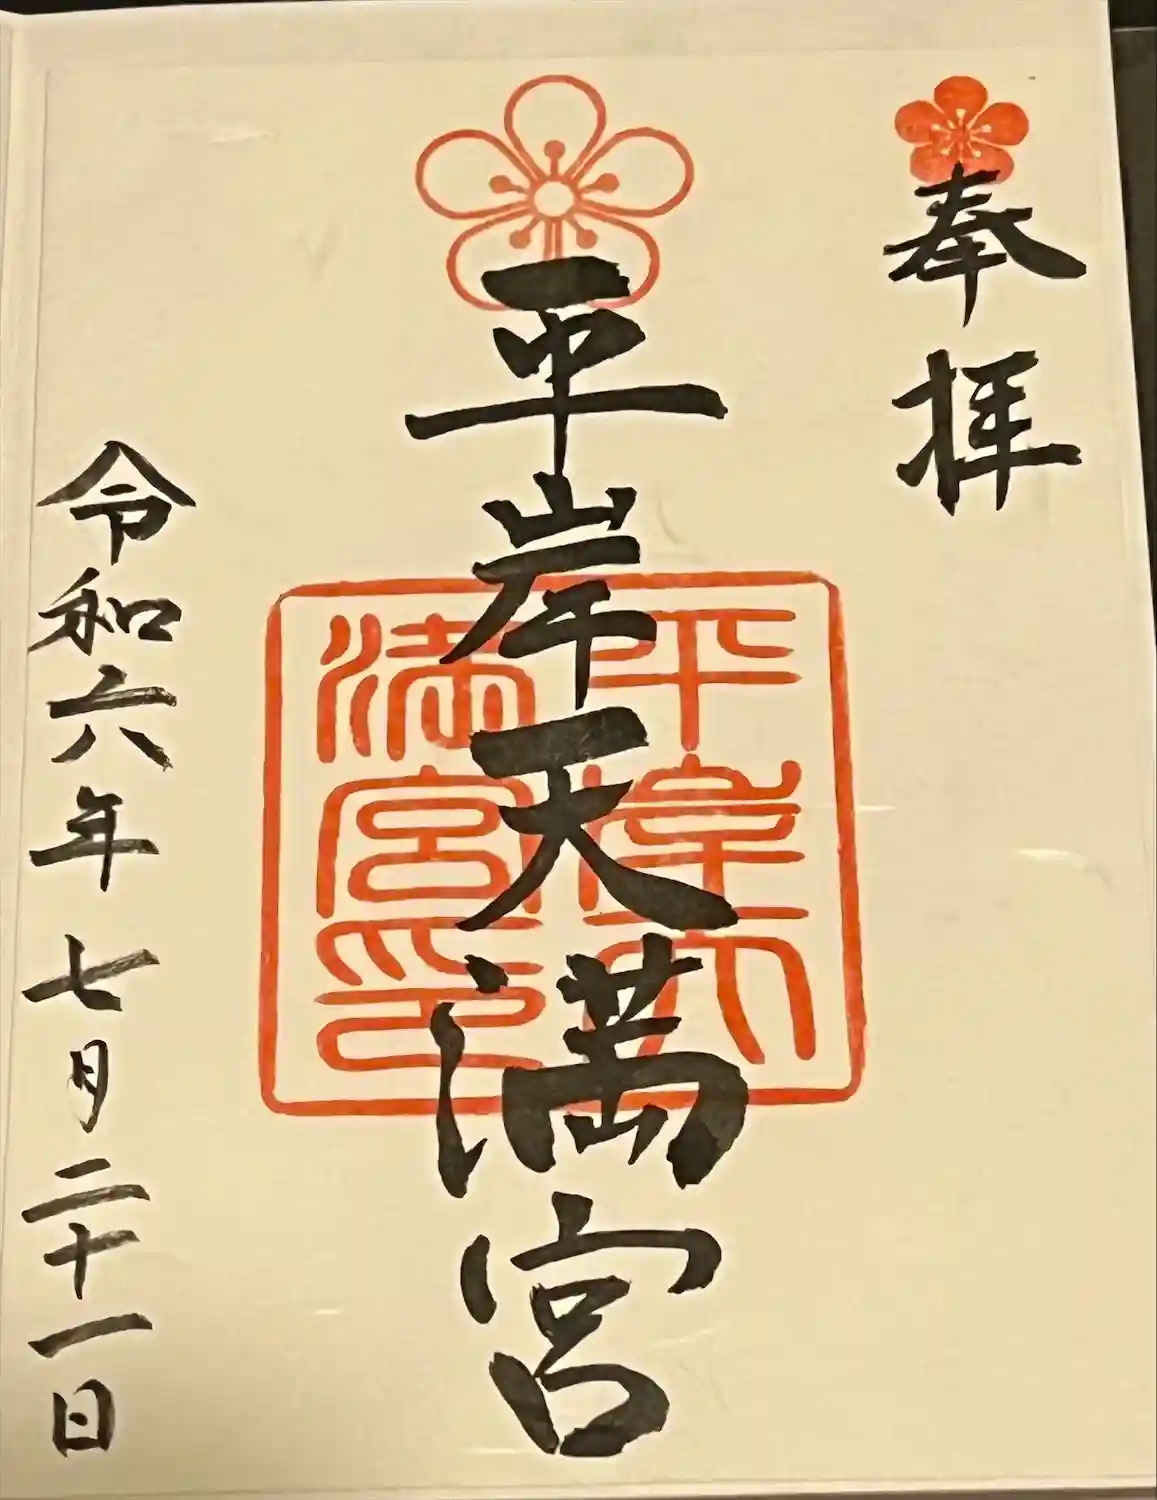 奉拝
平岸天満宮
平岸天
満宮印
令和六年七月二十一日